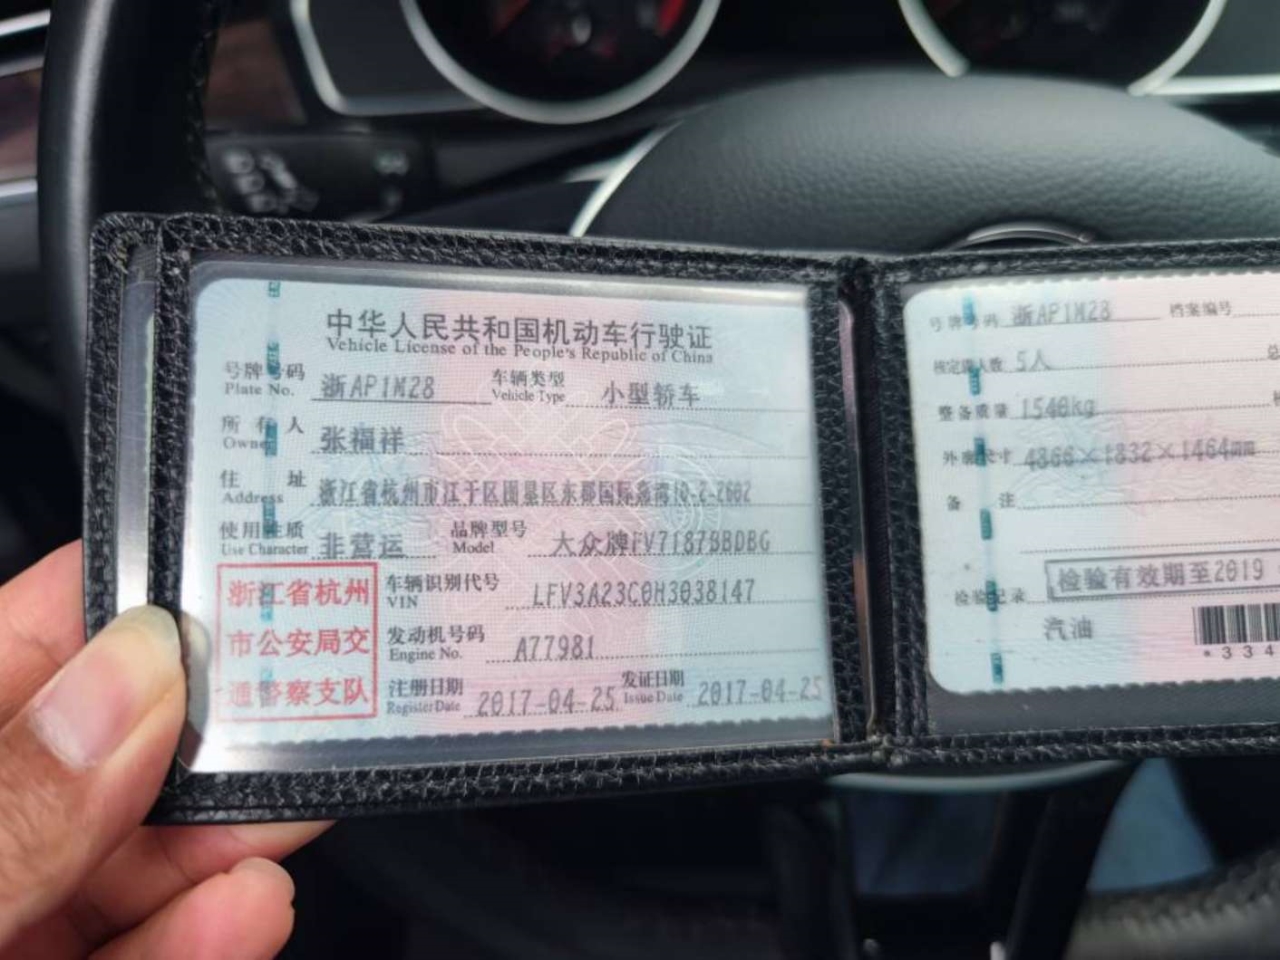 中华人民共和国机动车行驶证
Vehicle License of the People's Republic of China
号牌号码 浙AP1M28 车辆类型 小型轿车
Plate No. Vehicle Type
所有人 张福祥
Owner
住址 浙江省杭州市江干区 区东郡国际 湾10-2-2602
Address
使用性质 非营运 品牌型号 大众牌FV7187BBDBG
Use Character Model
浙江省杭州
市公安局交
通警察支队
车辆识别代号 LFV3A23C0H3038147
VIN
发动机号码 A77981
Engine No.
注册日期 2017-04-25 发证日期 2017-04-25
Register Date Issue Date
号牌号码 浙AP1M28 档案编号
核定载人数 5人 总
整备质量 1540kg
外廓尺寸 4866×1832×1464mm
备注
检验记录 检验有效期至2019
汽油
*334